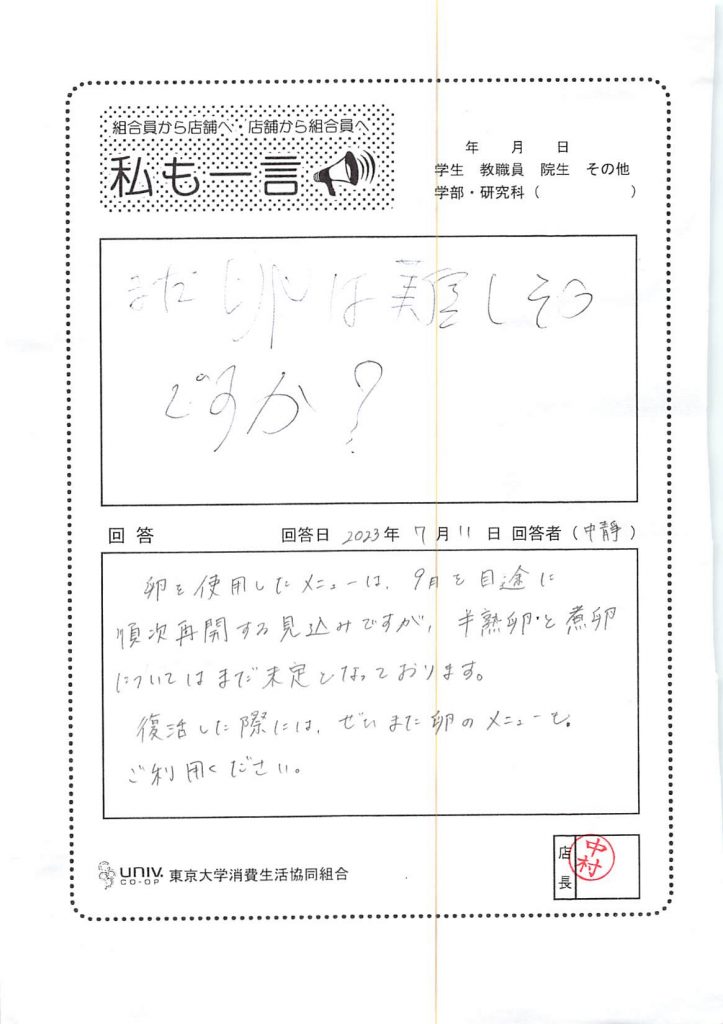 組合員から店舗へ・店舗から組合員へ
私も一言
年 月 日
学生 教職員 院生 その他
学部・研究科( )
まだ卵は難しそう
ですか?
回答 回答日 2023年 7月11日 回答者(中静)
卵を使用したメニューは、9月を目途に
順次再開する見込みですが、半熟卵と煮卵
についてはまだ未定となっております。
復活した際には、ぜひまた卵のメニューを
ご利用ください。
UNIV. CO-OP 東京大学消費生活協同組合
店長 中村